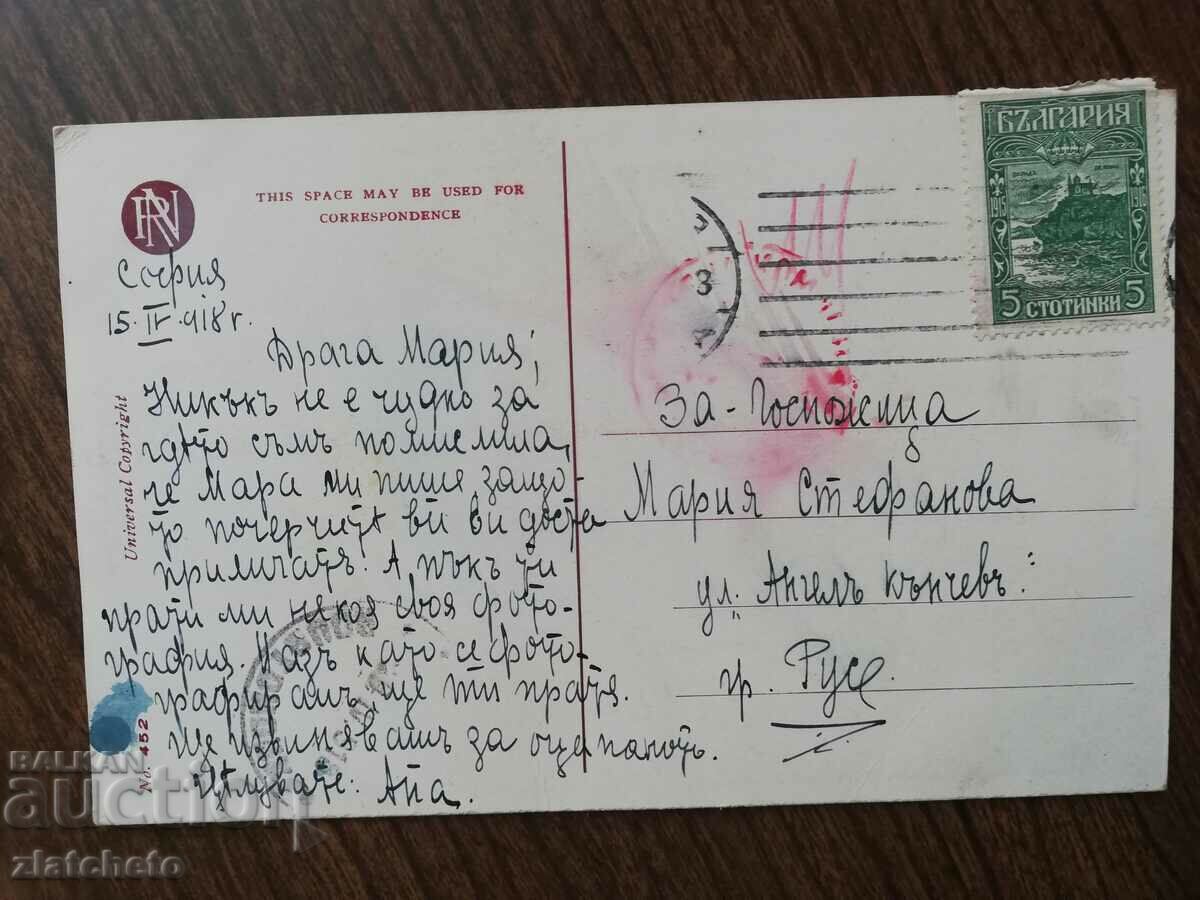 RN
THIS SPACE MAY BE USED FOR
CORRESPONDENCE
София
15. IV. 918 г.
Драга Мария;
Никъкъ не е чудно за
гдѣто съмъ помислила,
че Мара ми пише, защо-
то почерцитѣ ви ви доста
приличатъ. А пъкъ ти
прати ми некоя своя фото-
графия. И азъ като се фото-
графирамъ, ще ти пратя.
Ще извинявашъ за
Цѣлувате: Ана.
Universal Copyright
No. 452
БЪЛГАРИЯ
1915
5 СТОТИНКИ 5
3
За - Госпожица
Мария Стефанова
ул. Ангелъ Кънчевъ:
гр. Русе.
BALKAN
auction
zlatcheto